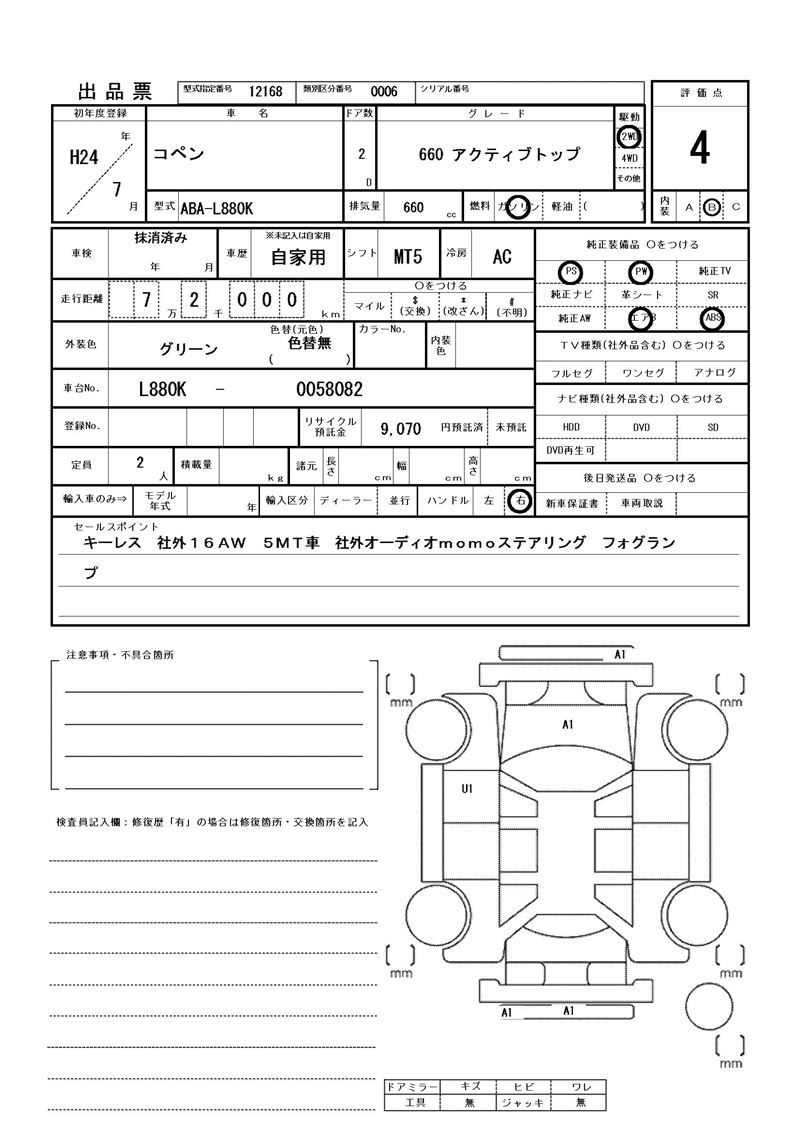 出品票 型式指定番号 12168 類別区分番号 0006 シリアル番号
評価点
4
内装 A B C
初年度登録 車名 ドア数 グレード 駆動
H24 年 7 月 コペン 2 D 660 アクティブトップ 2WD
4WD
その他
型式 ABA-L880K 排気量 660 cc 燃料 ガソリン 軽油 ( )
車検 抹消済み 年 月 車歴 ※未記入は自家用 自家用 シフト MT5 冷房 AC
走行距離 7 万 2 千 000 km 〇をつける
マイル $(交換) *(改ざん) #(不明)
外装色 グリーン 色替(元色) 色替無 ( ) カラーNo. 内装色
車台No. L880K - 0058082
登録No. リサイクル預託金 9,070 円預託済 未預託
定員 2 人 積載量 kg 諸元 長さ cm 幅 cm 高さ cm
輸入車のみ⇒ モデル年式 年 輸入区分 ディーラー 並行 ハンドル 左 右
純正装備品 〇をつける
PS PW 純正TV
純正ナビ 革シート SR
純正AW エアB ABS
TV種類(社外品含む) 〇をつける
フルセグ ワンセグ アナログ
ナビ種類(社外品含む) 〇をつける
HDD DVD SD
DVD再生可
後日発送品 〇をつける
新車保証書 車両取説
セールスポイント
キーレス 社外16AW 5MT車 社外オーディオmomoステアリング フォグラン
プ
注意事項・不具合箇所
検査員記入欄：修復歴「有」の場合は修復箇所・交換箇所を記入
A1
[ ] mm [ ] mm
A1
U1
[ ] mm [ ] mm
A1 A1
[ ] mm
ドアミラー キズ ヒビ ワレ
工具 無 ジャッキ 無